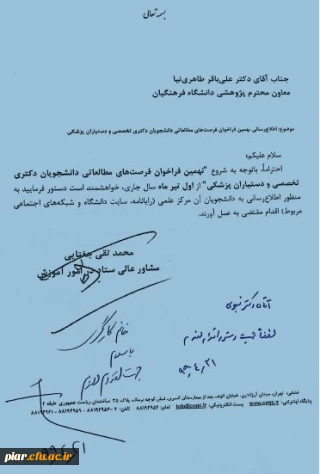 بسمه تعالی
جناب آقای دکتر علی‌باقر طاهری‌نیا
معاون محترم پژوهشی دانشگاه فرهنگیان
موضوع: اطلاع‌رسانی نهمین فراخوان فرصت‌های مطالعاتی دانشجویان دکتری تخصصی و دستیاران پزشکی
سلام علیکم؛
احتراماً، باتوجه به شروع "نهمین فراخوان فرصت‌های مطالعاتی دانشجویان دکتری
تخصصی و دستیاران پزشکی" از اول تیر ماه سال جاری، خواهشمند است دستور فرمایید به
منظور اطلاع‌رسانی به دانشجویان آن مرکز علمی (رایانامه، سایت دانشگاه و شبکه‌های اجتماعی
مربوط) اقدام مقتضی به عمل آورند.
محمد تقی جغتایی
مشاور عالی ستاد در امور آموزش
آقای دکتر
لطفاً جهت
خانم
باسلام
جهت
نشانی: تهران، میدان آرژانتین، خیابان الوند، بعد از بیمارستان کسری، نبش کوچه نیک، پلاک ۳۵ ساختمان ریاست جمهوری طبقه ۲
پایگاه اینترنتی: پست الکترونیکی: تلفن:
piar.cfu.ac.ir